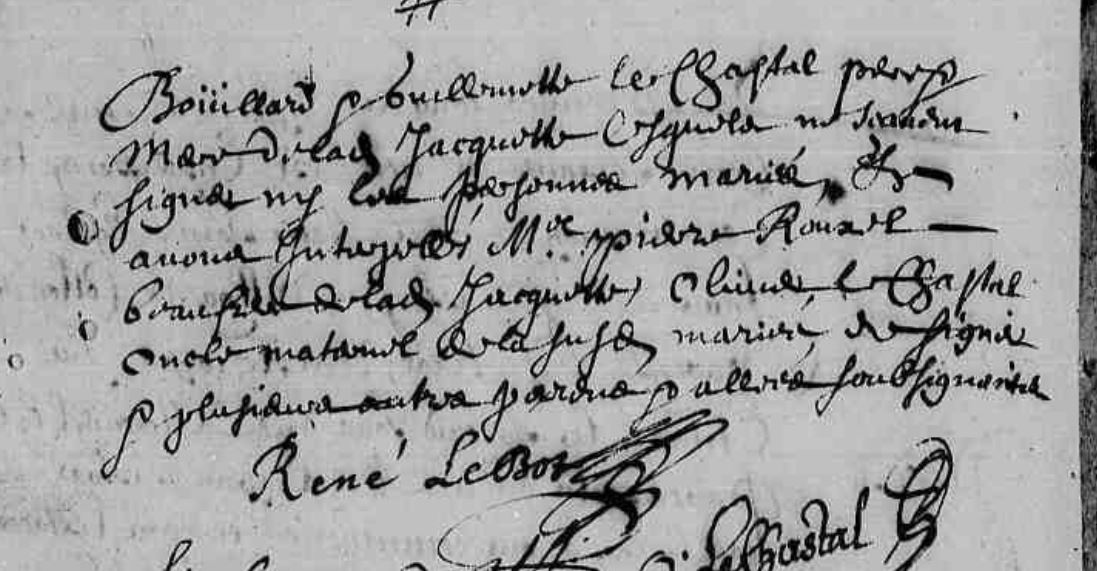 Boüillard & Guillemette le Chastal pere &
Mere de lad Jacquette lesquels ne scavent
signer ny les personnes mariés, Et
avons interpellé Me. pierre Rouxel
beaufrere de lad Jacquette, Olivier le Chastal
oncle maternel de la susd mariée de signer
& plusieurs autres parens & alliés soubsignants
René LeBot
LeChastal